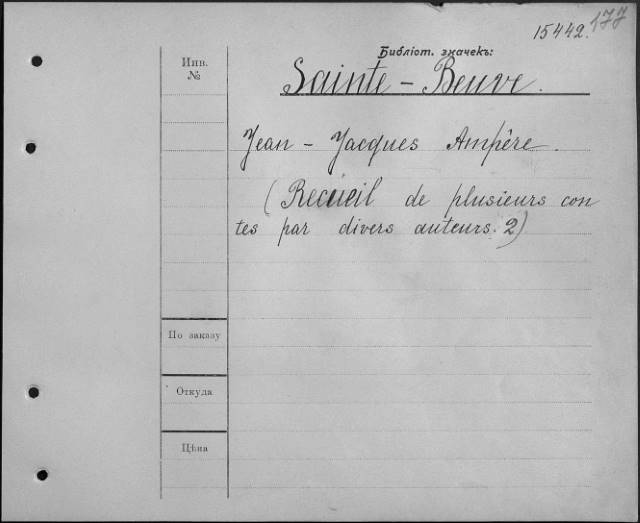 15442. 177
Библіот. значекъ:
Инв.
№
Sainte-Beuve.
Jean-Jacques Ampère.
(Recueil de plusieurs con
tes par divers auteurs. 2)
По заказу
Откуда
Цѣна